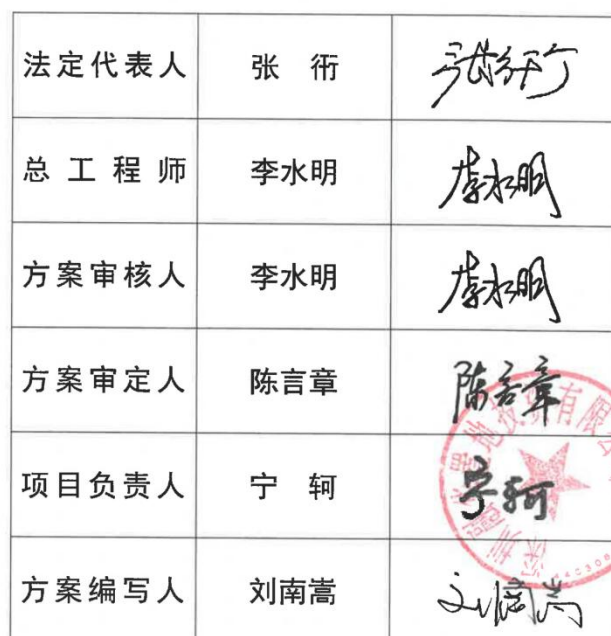 法定代表人 张 衎 张衎
总工程师 李水明 李水明
方案审核人 李水明 李水明
方案审定人 陈言章 陈言章
项目负责人 宁 轲 宁轲
方案编写人 刘南嵩 刘南嵩
深圳 地技 有限公